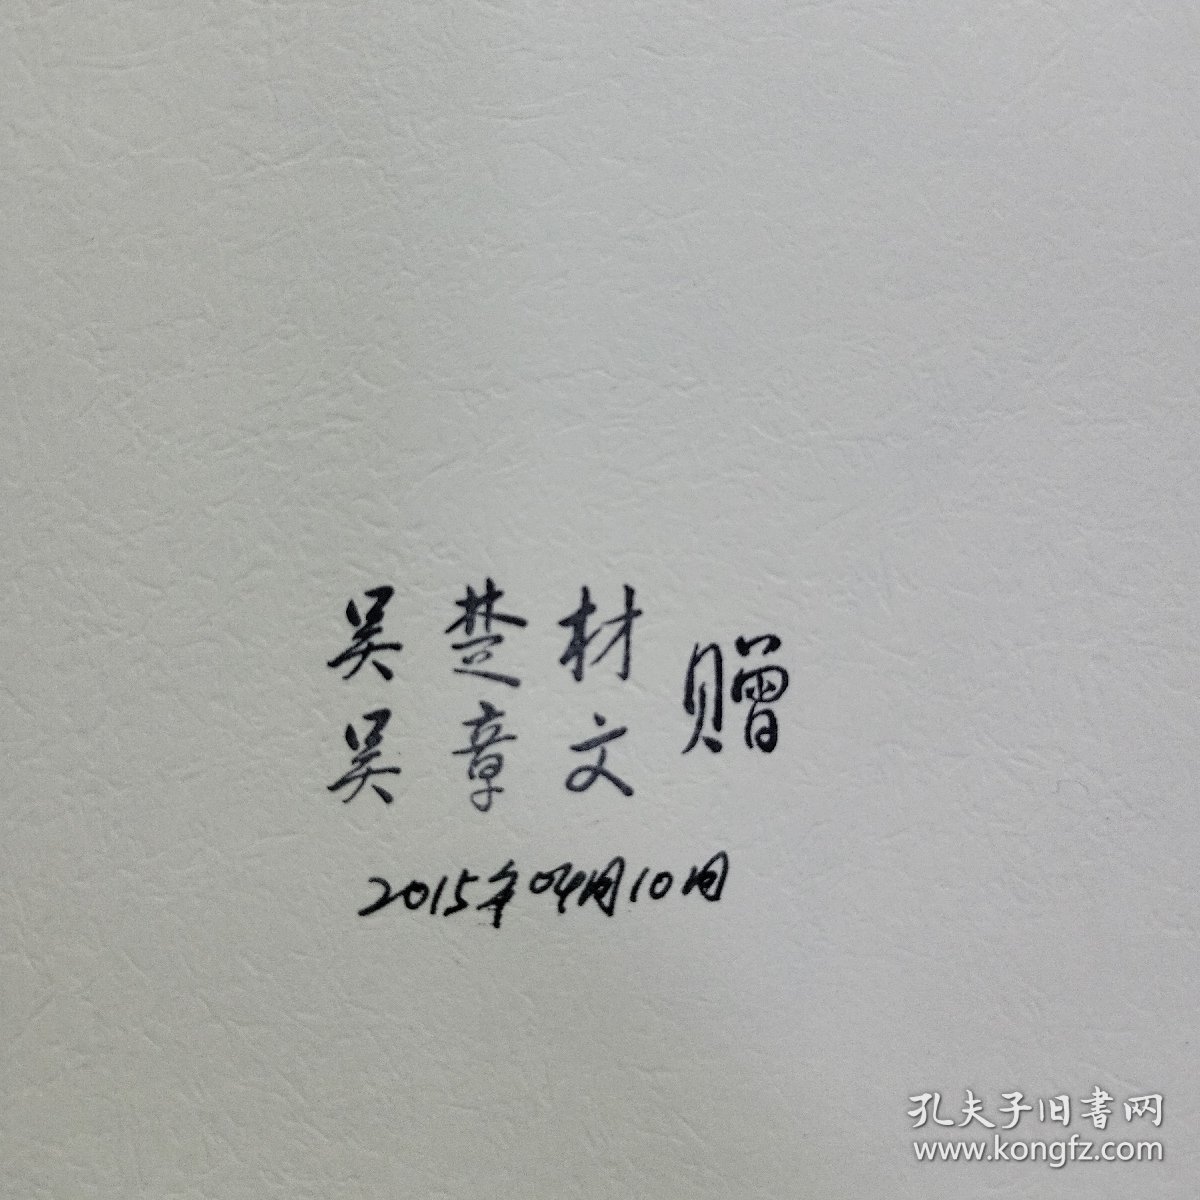 吴楚材
吴章文
赠
2015年04月10日
孔夫子旧书网
www.kongfz.com